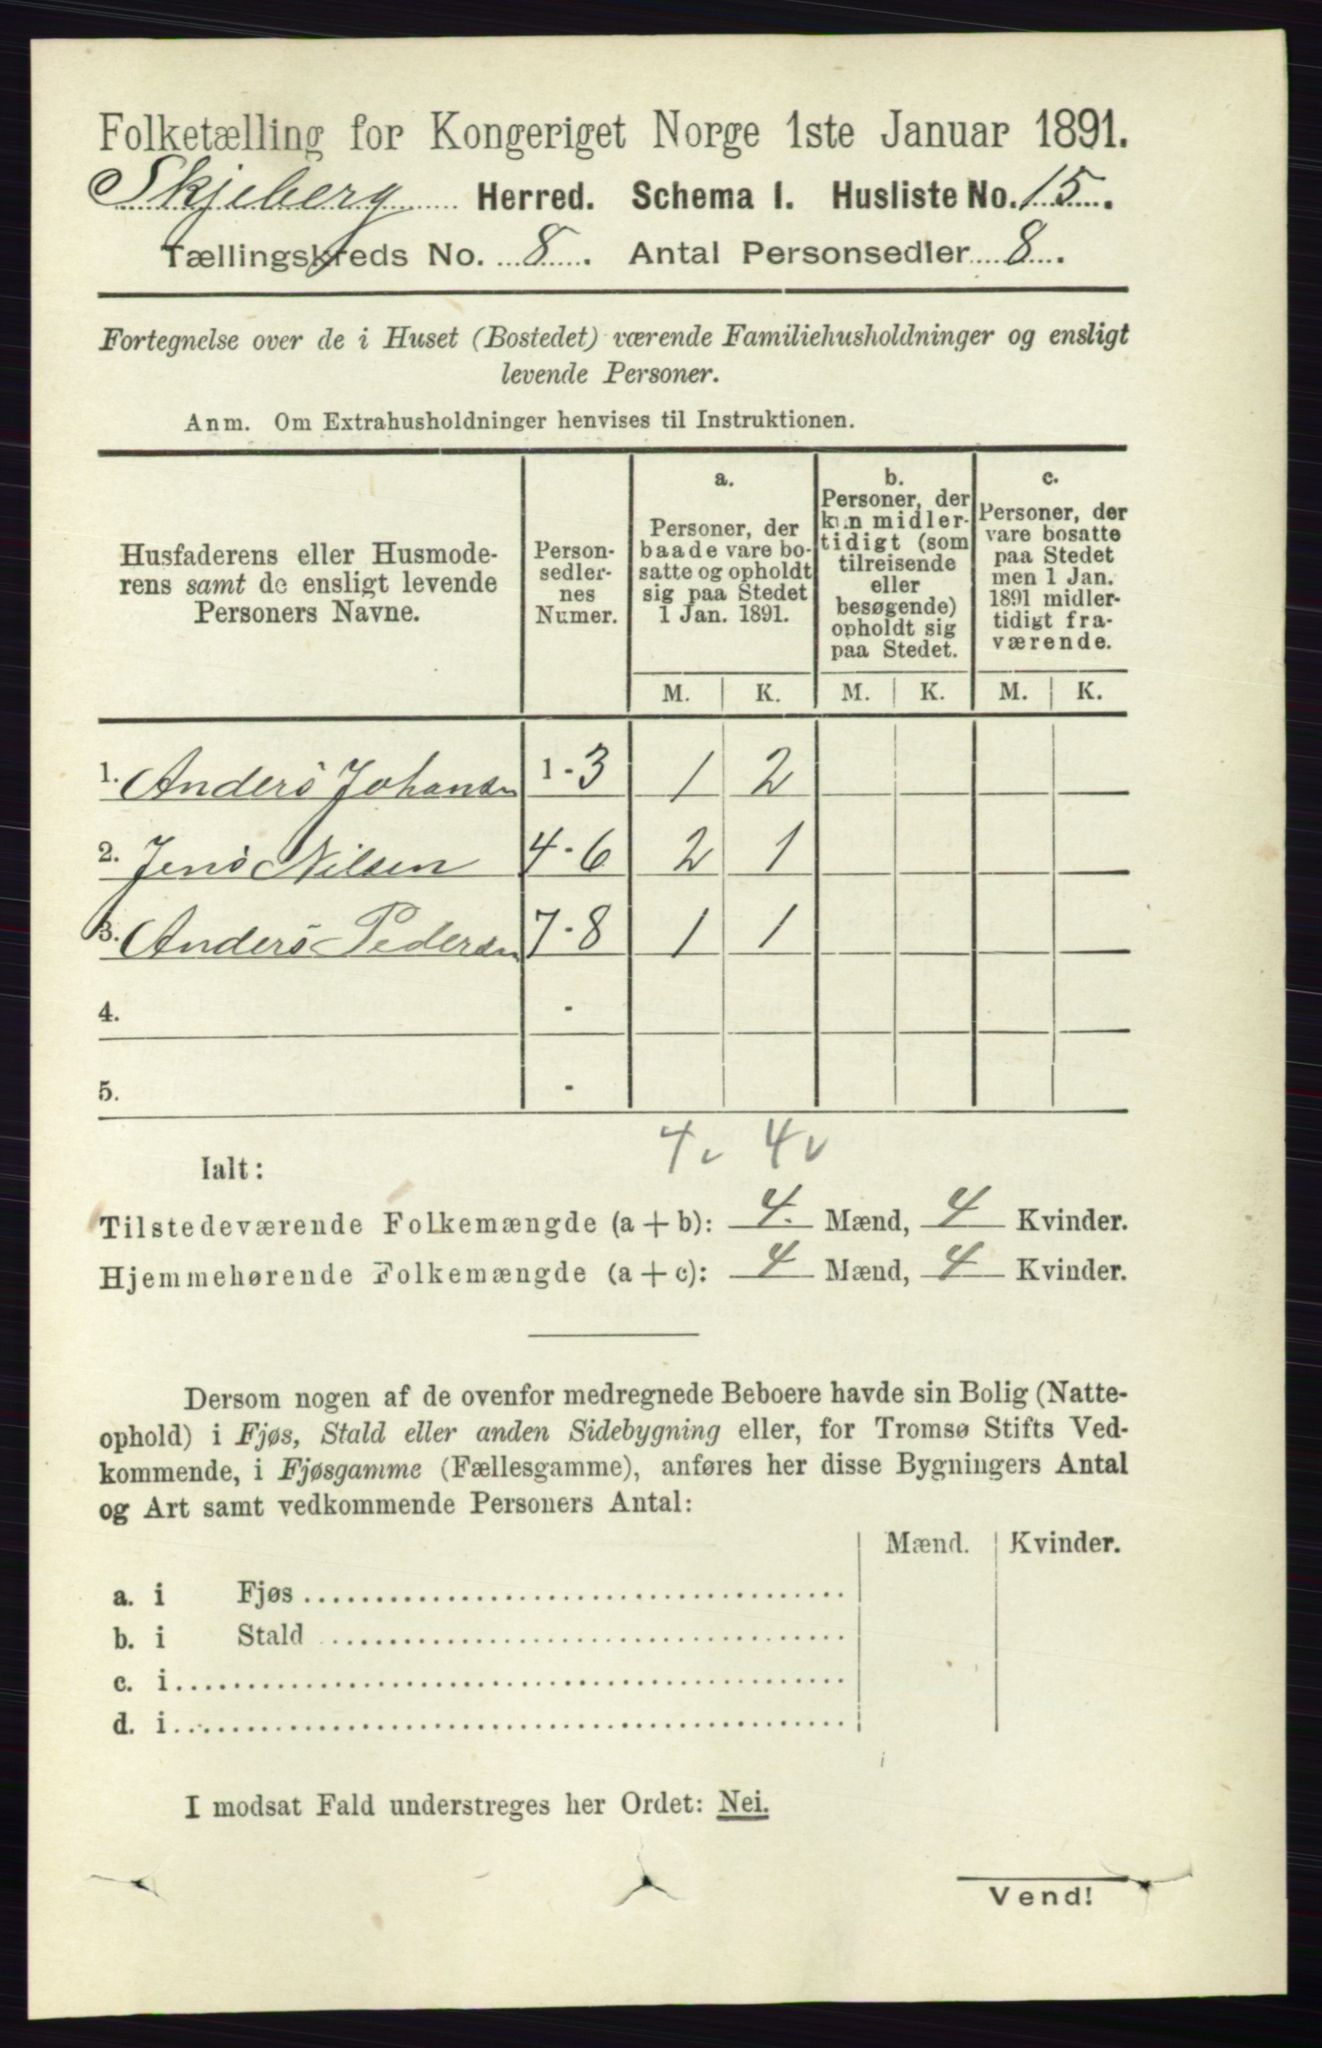 Folketælling for Kongeriget Norge 1ste Januar 1891.
Skjeberg Herred. Schema 1. Husliste No. 15.
Tællingskreds No. 8. Antal Personsedler 8.
Fortegnelse over de i Huset (Bostedet) værende Familiehusholdninger og ensligt
levende Personer.
Anm. Om Extrahusholdninger henvises til Instruktionen.
Husfaderens eller Husmode-
rens samt de ensligt levende
Personers Navne.
Person-
sedler-
nes
Numer.
a.
Personer, der
baade vare bo-
satte og opholdt
sig paa Stedet
1 Jan. 1891.
b.
Personer, der
kun midler-
tidigt (som
tilreisende
eller
besøgende)
opholdt sig
paa Stedet.
c.
Personer, der
vare bosatte
paa Stedet
men 1 Jan.
1891 midler-
tidigt fra-
værende.
M. K. M. K. M. K.
1. Anders Johansn 1-3 1 2
2. Jens Nilsen 4-6 2 1
3. Anders Pedersn 7-8 1 1
4. -
5. -
4 v 4 v
Ialt:
Tilstedeværende Folkemængde (a + b): 4. Mænd, 4 Kvinder.
Hjemmehørende Folkemængde (a + c): 4 Mænd, 4 Kvinder.
Dersom nogen af de ovenfor medregnede Beboere havde sin Bolig (Natte-
ophold) i Fjøs, Stald eller anden Sidebygning eller, for Tromsø Stifts Ved-
kommende, i Fjøsgamme (Fællesgamme), anføres her disse Bygningers Antal
og Art samt vedkommende Personers Antal:
Mænd. Kvinder.
a. i Fjøs
b. i Stald
c. i
d. i
I modsat Fald understreges her Ordet: Nei.
Vend!